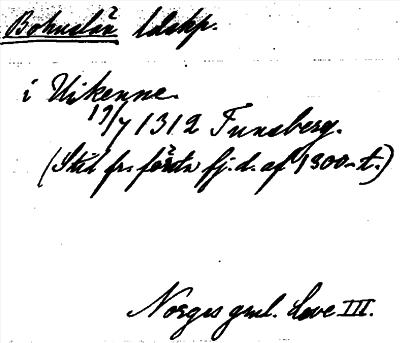 Bohuslän ldskp.
i Vikenne.
19/7 1312 Tunsberg.
(Stil fr. första fj.d. af 1300-t.)
Norges gml. Love III.